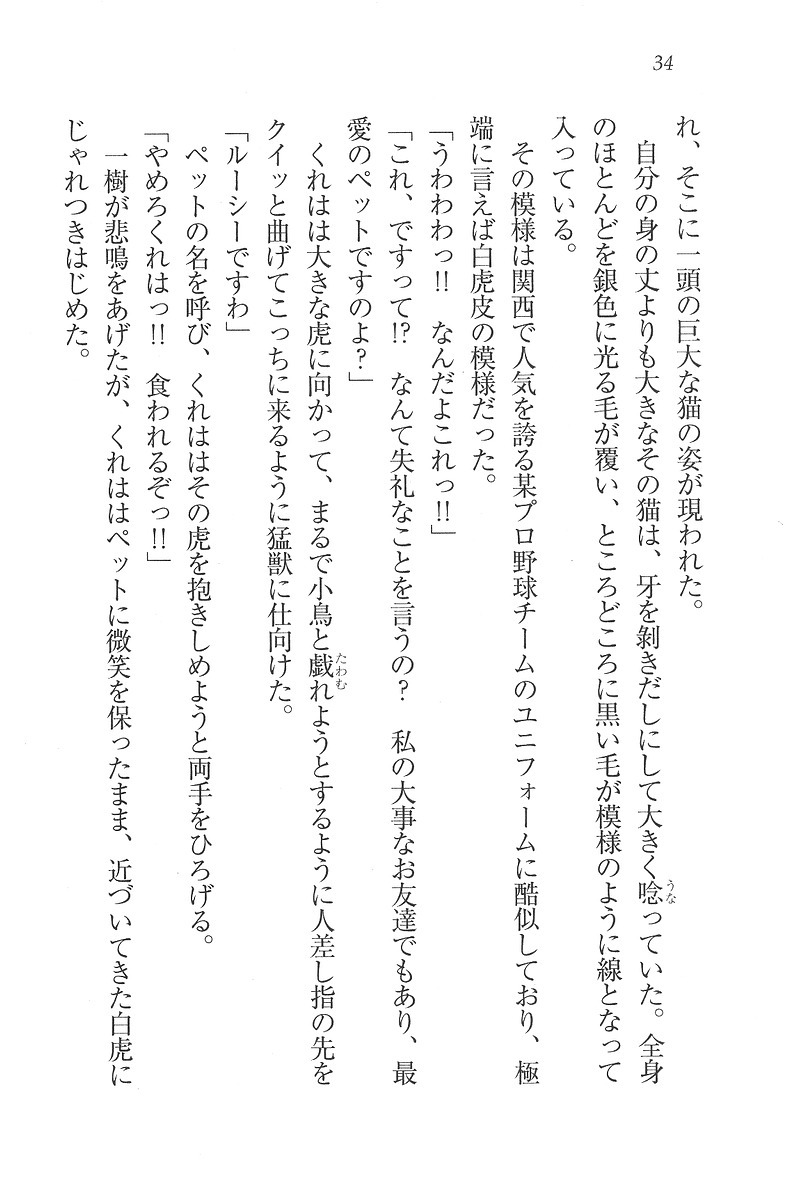 34
れ、そこに一頭の巨大な猫の姿が現われた。
　自分の身の丈よりも大きなその猫は、牙を剝きだしにして大きく唸っていた。全身
のほとんどを銀色に光る毛が覆い、ところどころに黒い毛が模様のように線となって
入っている。
　その模様は関西で人気を誇る某プロ野球チームのユニフォームに酷似しており、極
端に言えば白虎皮の模様だった。
「うわわわっ!!　なんだよこれっ!!」
「これ、ですって!?　なんて失礼なことを言うの？　私の大事なお友達でもあり、最
愛のペットですのよ？」
　くれはは大きな虎に向かって、まるで小鳥と戯れようとするように人差し指の先を
クイッと曲げてこっちに来るように猛獣に仕向けた。
「ルーシーですわ」
　ペットの名を呼び、くれははその虎を抱きしめようと両手をひろげる。
「やめろくれはっ!!　食われるぞっ!!」
　一樹が悲鳴をあげたが、くれははペットに微笑を保ったまま、近づいてきた白虎に
じゃれつきはじめた。
うな
たわむ